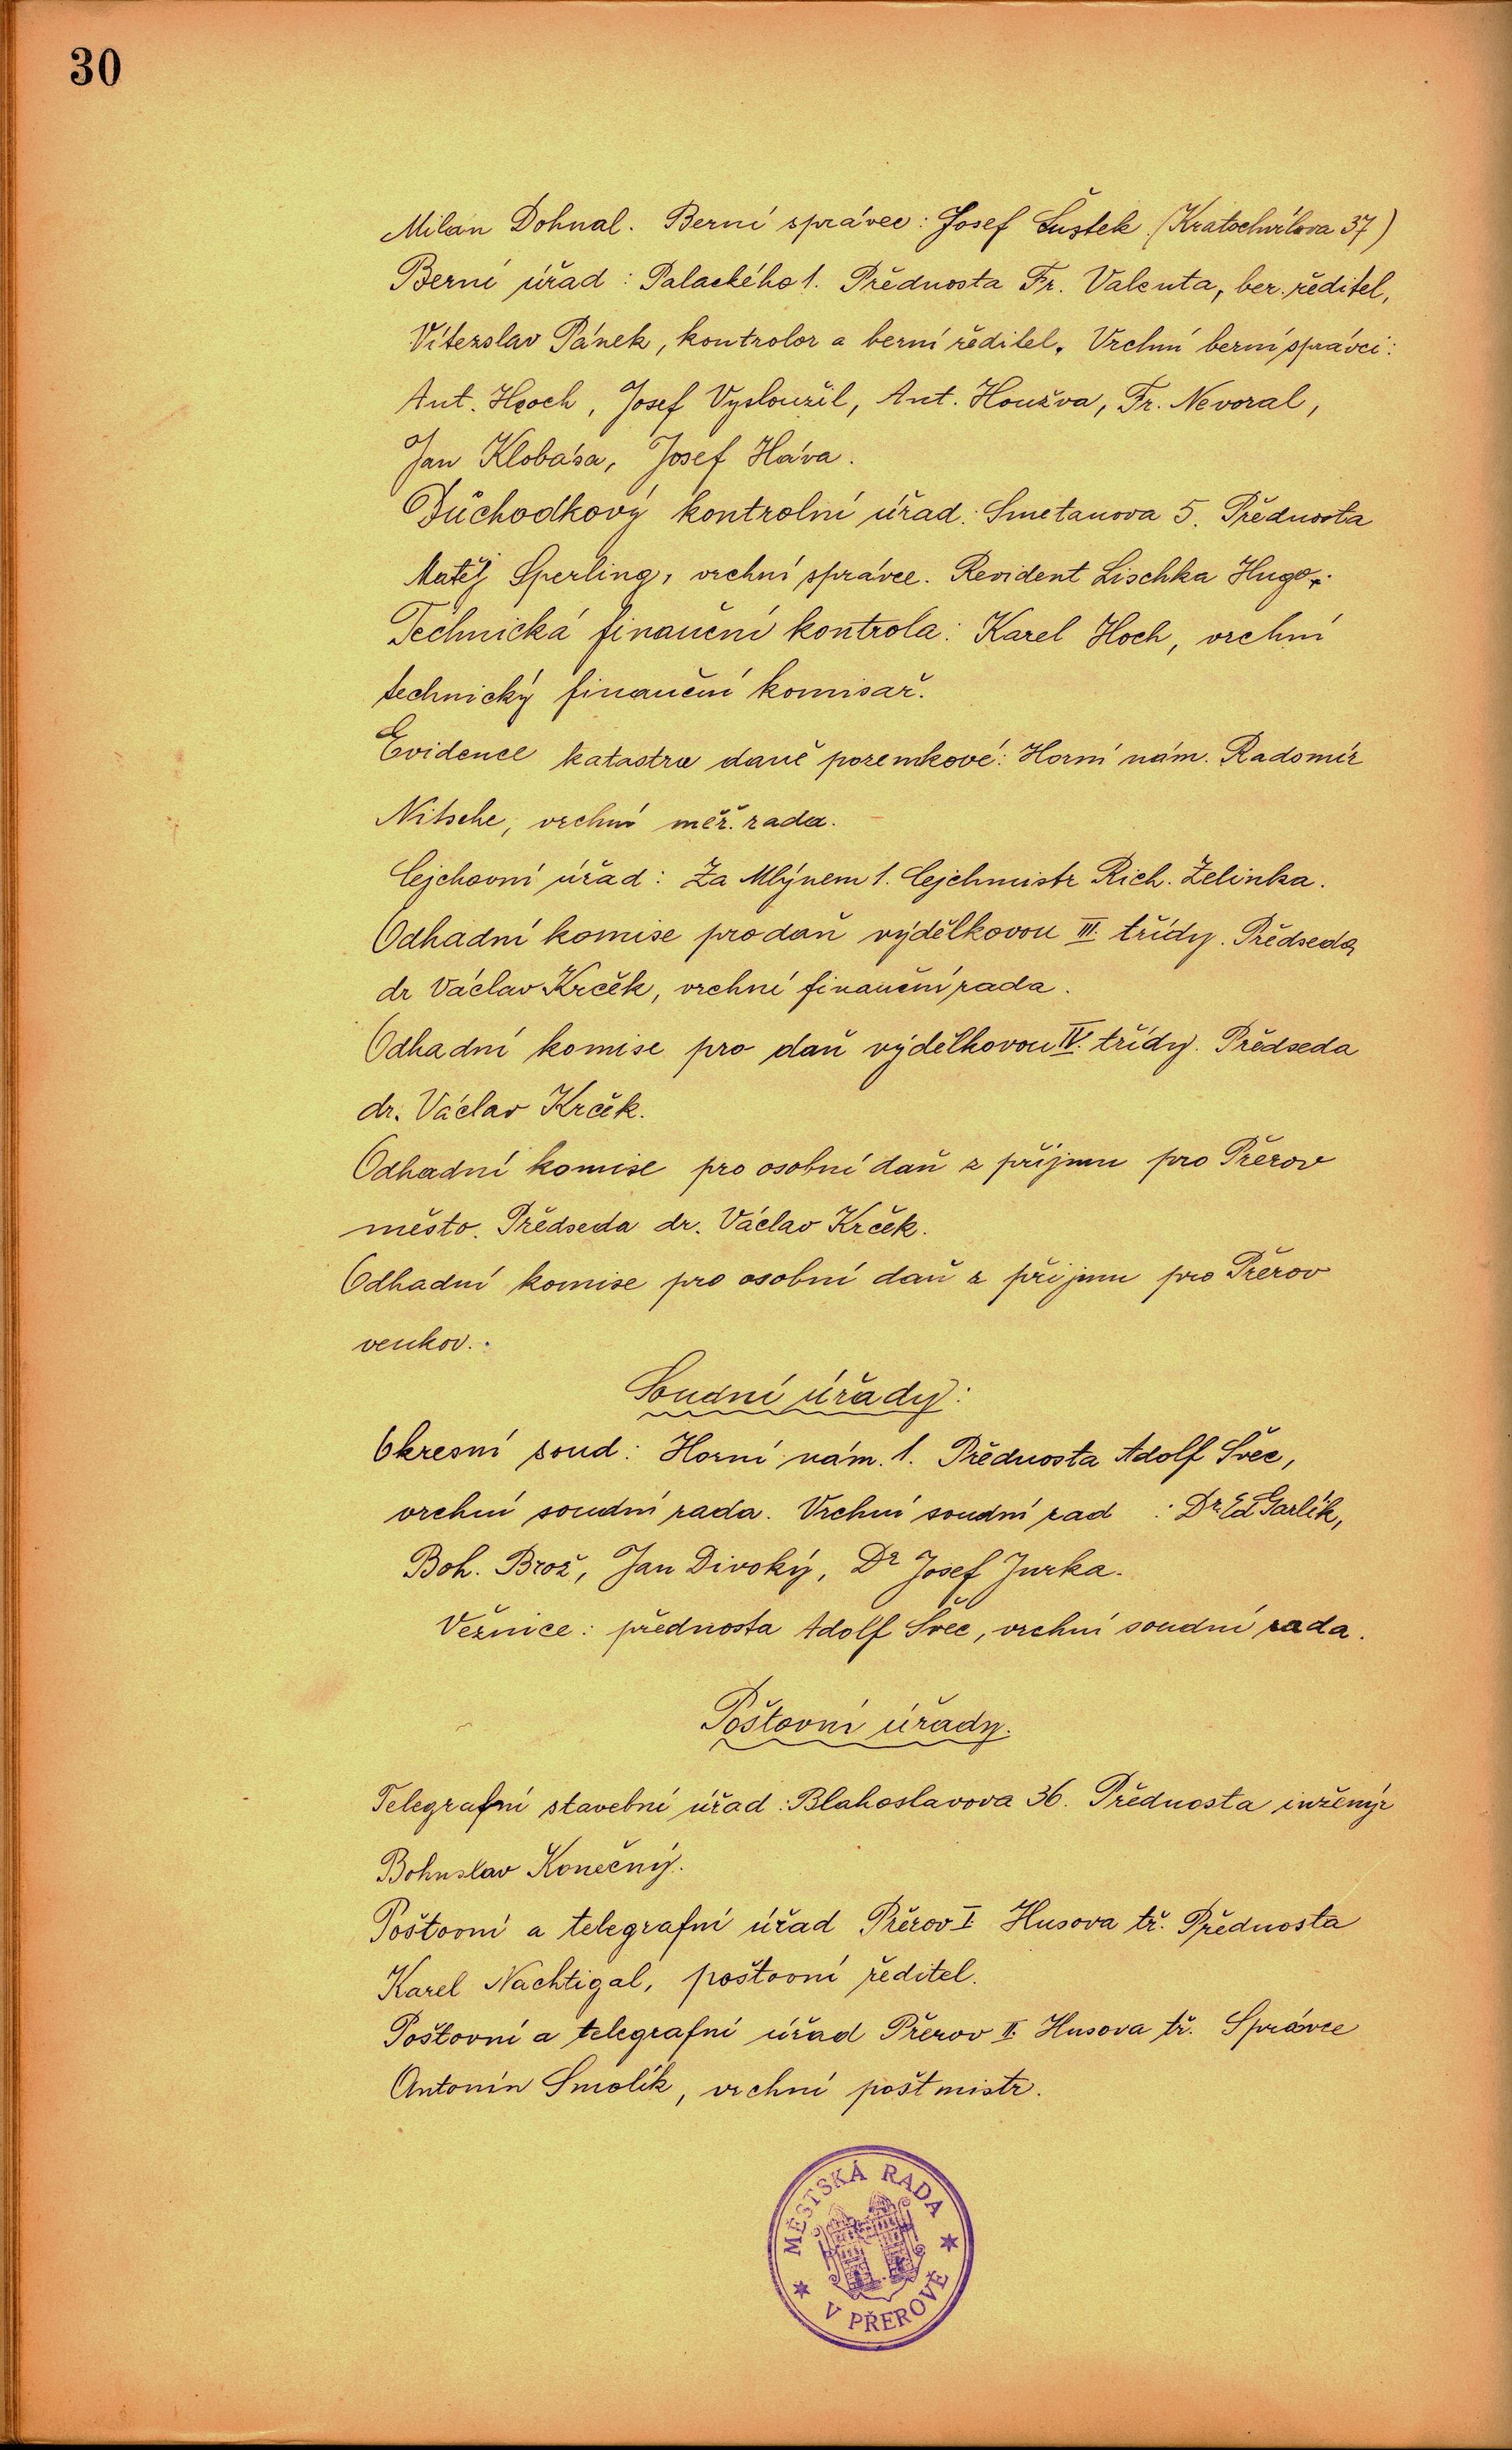 30
Milan Dohnal. Berní správce: Josef Šustek (Kratochvílova 37)
Berní úřad: Palackého 1. Přednosta Fr. Valenta, ber. ředitel,
Vítezslav Pánek, kontrolor a berní ředitel. Vrchní berní správci:
Ant. Hroch, Josef Vysloužil, Ant. Houžva, Fr. Nevoral,
Jan Klobása, Josef Háva.
Důchodkový kontrolní úřad: Smetanova 5. Přednosta
Matěj Sperling, vrchní správce. Revident Lischka Hugo.
Technická finanční kontrola: Karel Hoch, vrchní
technický finanční komisař.
Evidence katastru daně pozemkové: Horní nám. Radomír
Nitsche, vrchní měř. rada.
Cejchovní úřad: Za Mlýnem 1. Cejchmistr Rich. Zelinka.
Odhadní komise pro daň výdělkovou III. třídy. Předseda
dr Václav Krček, vrchní finanční rada.
Odhadní komise pro daň výdělkovou IV. třídy. Předseda
dr. Václav Krček.
Odhadní komise pro osobní daň z příjmu pro Přerov
město. Předseda dr. Václav Krček.
Odhadní komise pro osobní daň z příjmu pro Přerov
venkov.
Soudní úřady:
Okresní soud: Horní nám. 1. Přednosta Adolf Švec,
vrchní soudní rada. Vrchní soudní rad : Dr Ed Garlík,
Boh. Brož, Jan Divoký, Dr Josef Jurka.
Věznice: přednosta Adolf Švec, vrchní soudní rada.
Poštovní úřady.
Telegrafní stavební úřad: Blahoslavova 36. Přednosta inženýr
Bohuslav Konečný.
Poštovní a telegrafní úřad Přerov I Husova tř. Přednosta
Karel Nachtigal, poštovní ředitel.
Poštovní a telegrafní úřad Přerov II. Husova tř. Správce
Antonín Smolík, vrchní poštmistr.
MĚSTSKÁ RADA
V PŘEROVĚ